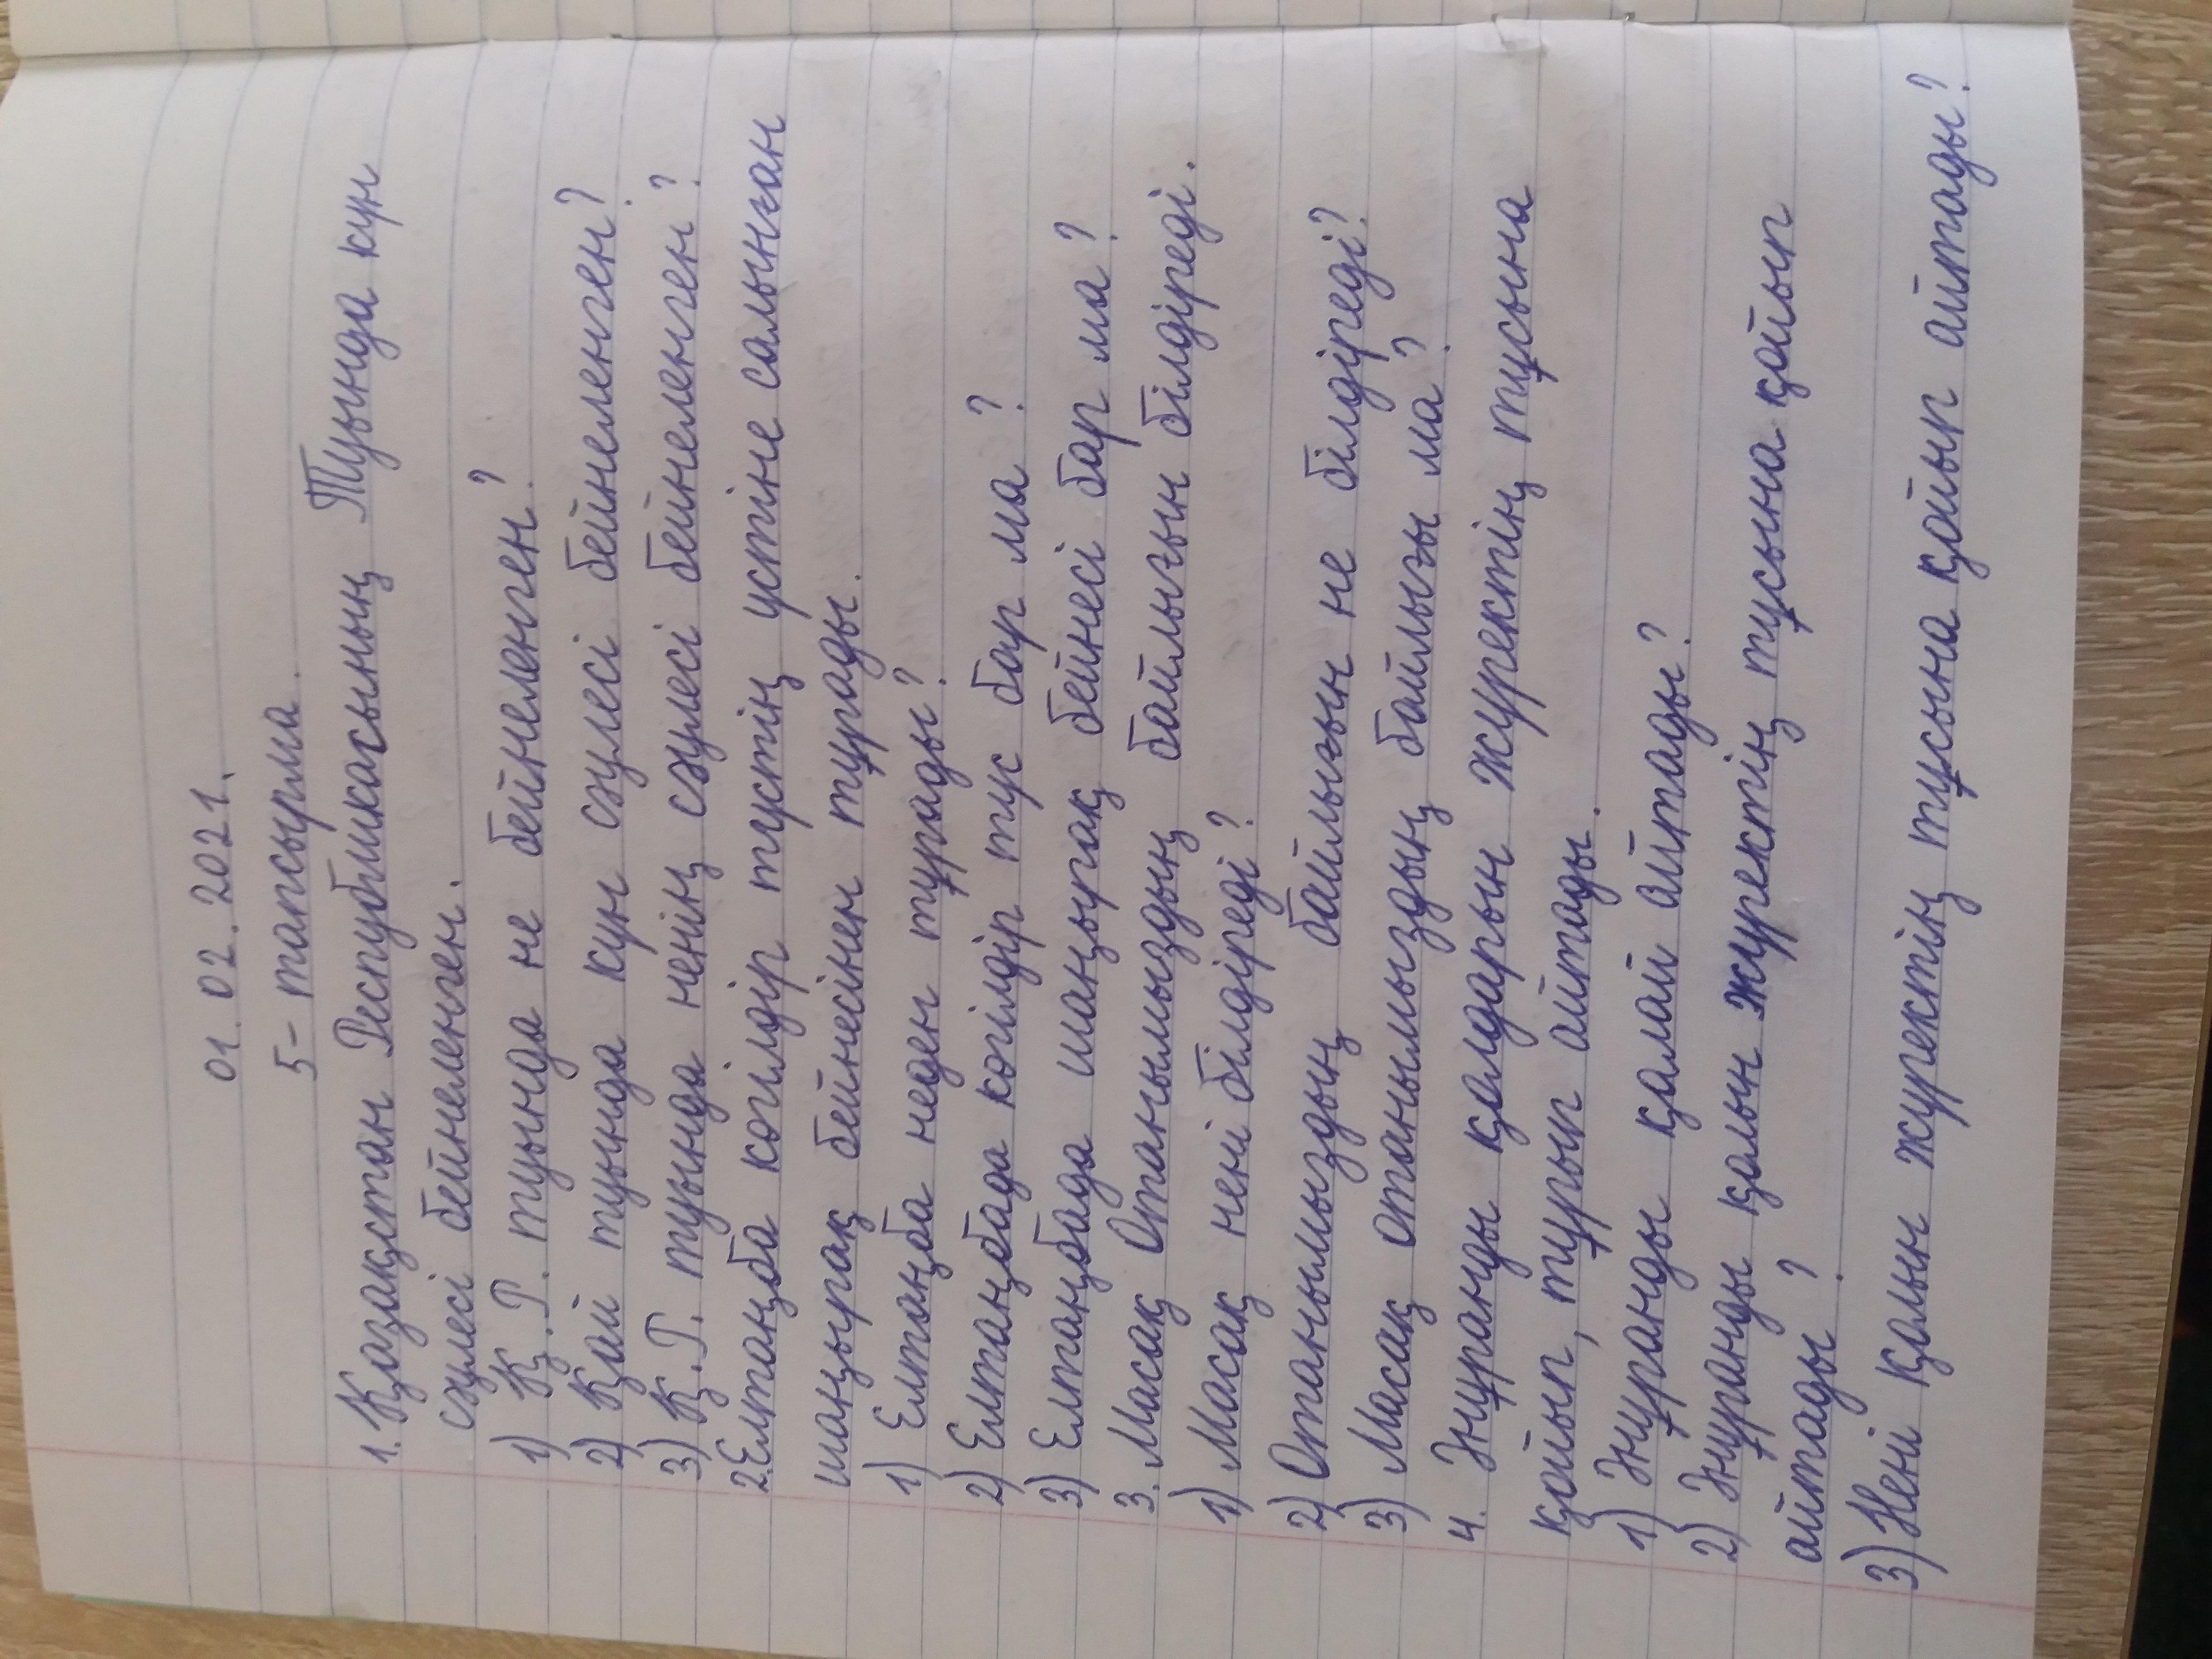 01. 02. 2021.
5- тапсырма.
1. Қазақстан Республикасының Туында күн
сәулесі бейнеленген.
1) Қ.Р. туында не бейнеленген?
2) Қай туында күн сәулесі бейнеленген?
3) Қ.Р. туында ненің сәулесі бейнеленген?
2. Елтаңба көгілдір түстің үстіне салынған
шаңырақ бейнесінен тұрады.
1) Елтаңба неден тұрады?
2) Елтаңбада көгілдір түс бар ма?
3) Елтаңбада шаңырақ бейнесі бар ма?
3. Масақ Отанымыздың байлығын білдіреді.
1) Масақ нені білдіреді?
2) Отанымыздың байлығын не білдіреді?
3) Масақ отанымыздың байлығы ма?
4. Әнұранды қолдарын жүректің тұсына
қойып, тұрып айтады.
1) Әнұранды қалай айтады?
2) Әнұранды қолын жүректің тұсына қойып
айтады?
3) Нені қолын жүректің тұсына қойып айтады?